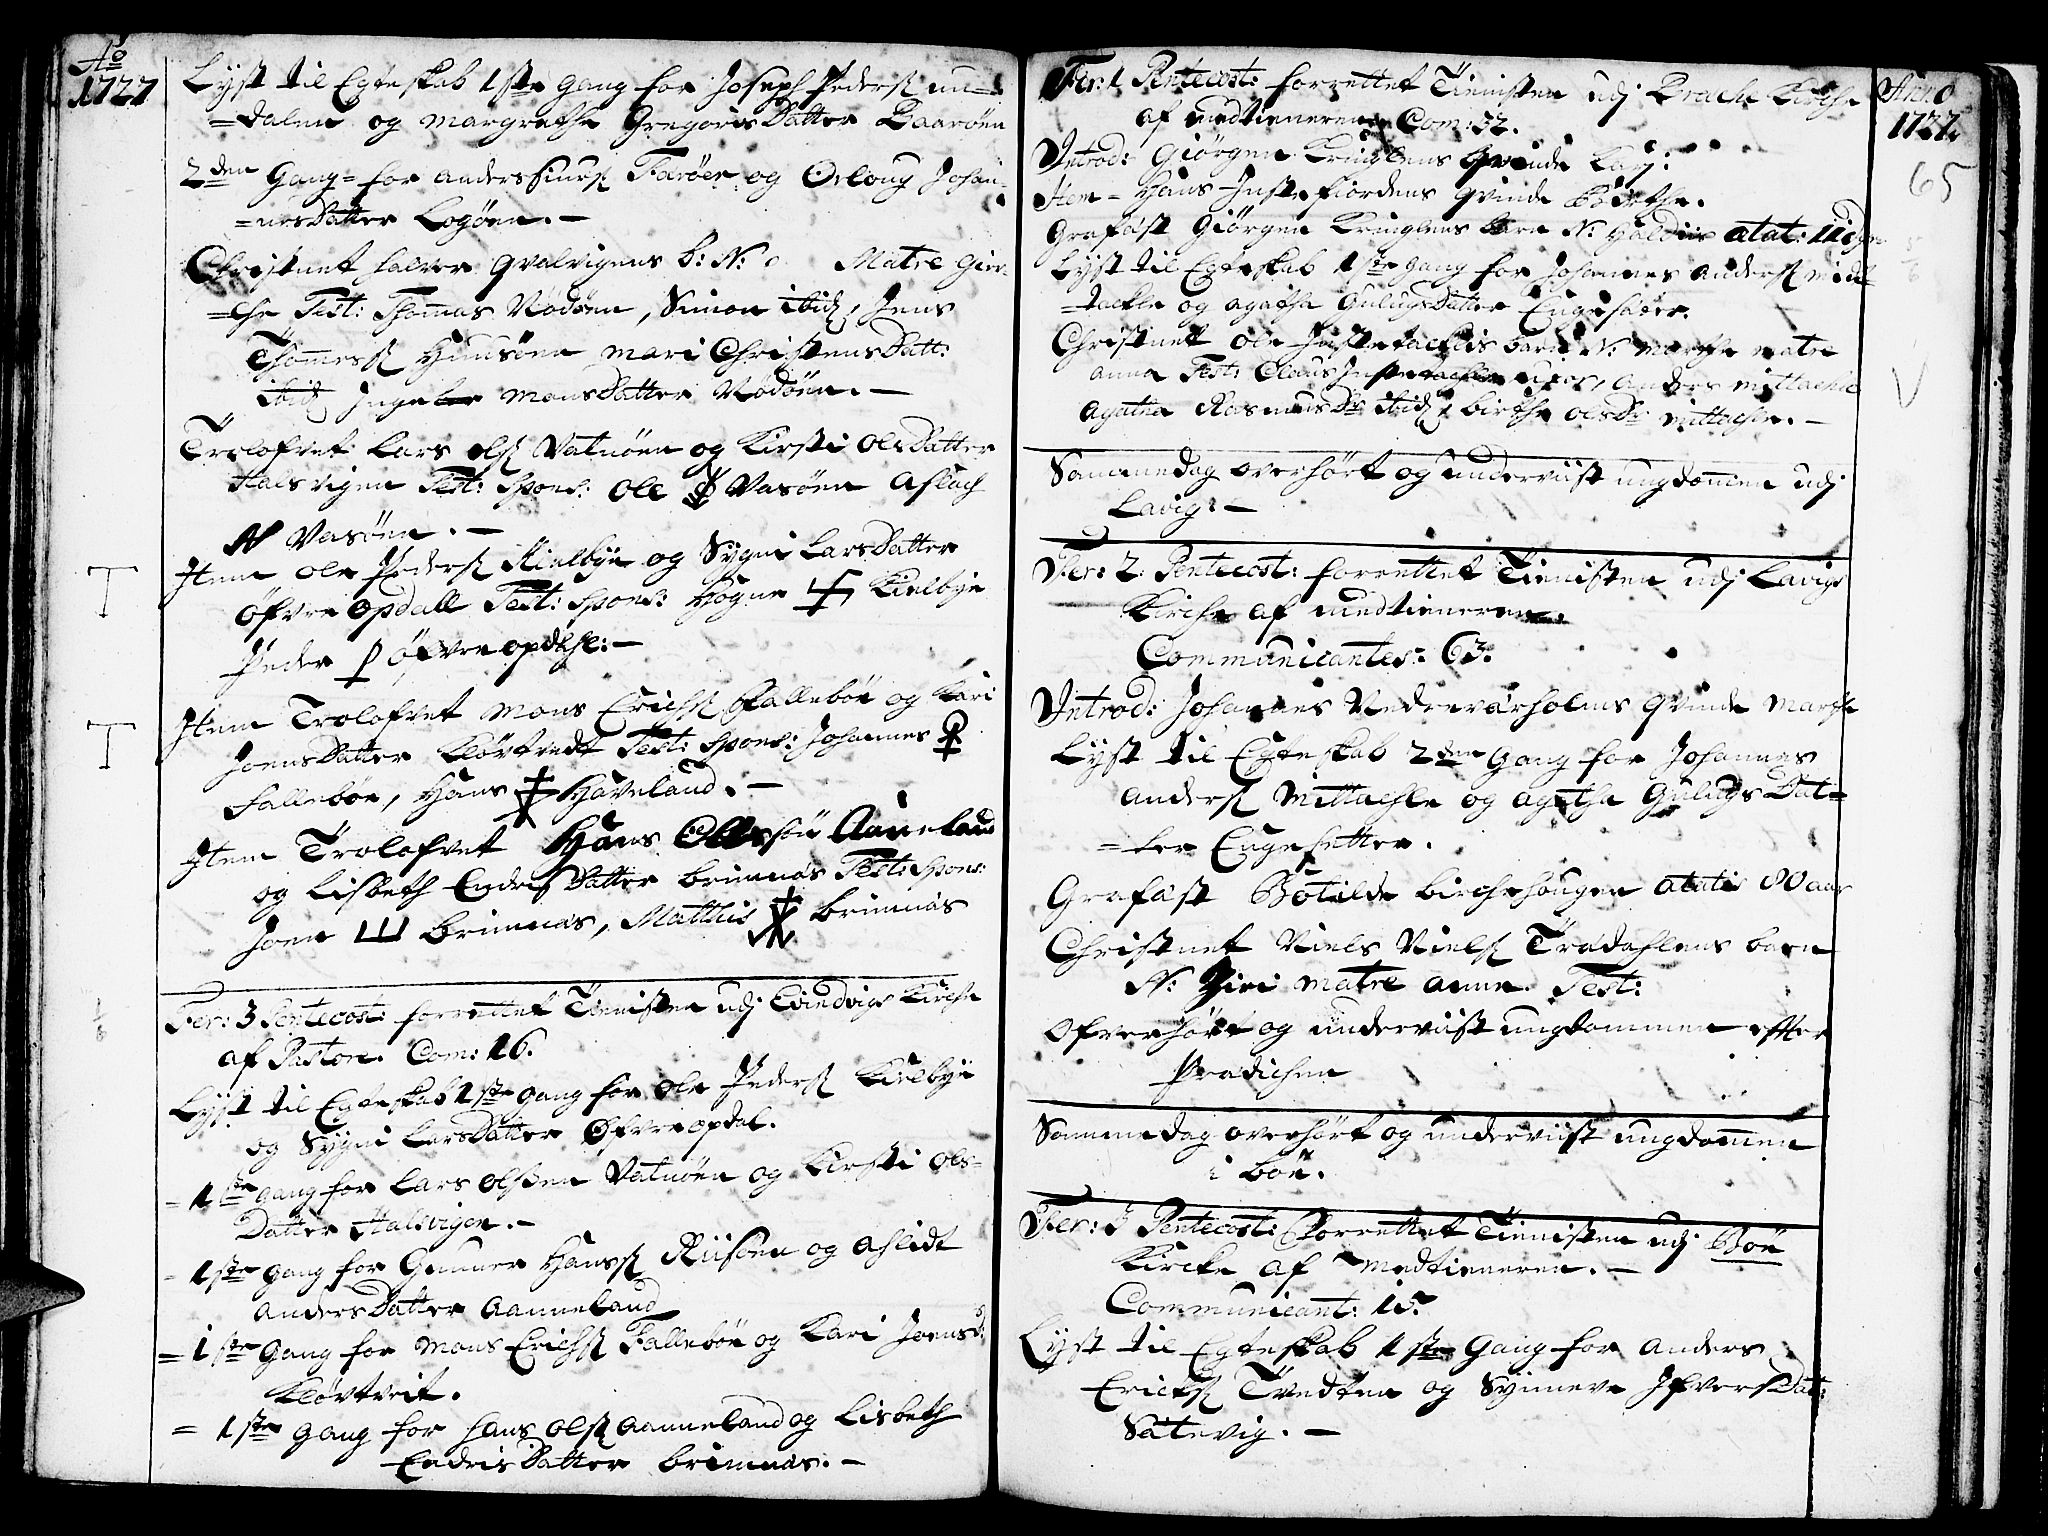 Ao
1727
Lyst til Egteskab 1ste gang for Joseph Peders
=dalen og Margrethe Gregoris Datter Baarøen
2den Gang= for Anders Farøen og Orloug Johan-
=nes Datter Logøen.-
Christnet Halver Qvalvigens b: N: Matre
Test: Thomas Nødøen, Simon ibid, Jens
Thomess Huusøen Mari Christens Datt:
ibid Mons Datter Nødøen.-
Trolofvet Lars Ols Vatnøen og Kirsti Ols Datter
Halsvigen Test: Spons: Ole Vasøen Aslach
Vasøen.-
Item Ole Peders Kielbye og Sygni Lars Datter
Øfvre Opdall Test: Spons: Høgne Kielbye
Peder Øfvre Opdhl:-
Item Trolofvet Mons Erichs Fallebøe og Kari
Joens Datter Kløvtvedt Test: Spons: Johannes
Fallebøe, Hans Haveland.-
Item Trolofvet Hans Olssøn Aaneland
og Lisbeth Endris Datter Brimnæs Test: Spons:
Joen Brimnæs, Mathis Brimnæs
1/6
Fer: 3 Pentecost: forrettet Tienisten udj Evindvigs Kirche
af Pastore. Com: 16.
Lyst til Egteskab 1ste gang for Ole Peders Kielbye
og Sygni Lars Datter Øfvre opdal.
= 1ste gang for Lars Olssen Vatnøen og Kirsti Ols-
Datter Halsvigen.-
- 1ste gang for Gunner Hanss Riisøen og Aslidt
Anders Datter Aanneland
= 1ste gang for Mons Erichs Fallebøe og Kari Joensd:
Kløvtveit.
= 1ste gang for Hans Ols Aanneland og Lisbeth
Endris Datter Brimnæs.-
Anno
1727.
65
Fer: 1 Pentecost: forrettet Tienisten udj Breche Kirche
af medtieneren Com: 32.
Introd: Giørgen Kringlens Qvinde Karj:
Item= Hans Instefiordens Qvinde Bødethe.
Grafæst Giørgen Kringlens barn N: ætat: 11
Lyst til Egteskab 1ste gang for Johannes Anders Mid-
=tachle og Agatha Gulugs Datter Engesæter.
5/6
Christnet Ole barn N: Marthe Matre
Anna Test: Claus uxor, Anders Mittachle
Agatha Rasmus Dr ibid, Birthe Ols Dr Mittachle.-
Sammedag overhørt og underviist ungdommen udj
Lavig:-
Fer: 2. Pentecost: forrettet Tienisten udj Lavigs
Kirche af medtieneren.
Communicantes: 63.
Introd: Johannes Nedrevarholms Qvinde Marthe
Lyst til Egteskab 2den gang for Johannes
Anders Mittachle og Agatha Gulugs Dat=
=ter Engesetter.
Grafæst Bøtilde Birchehougen ætatis 80 aar
Christnet Niels Niels Trædahlens barn
N: Siri Matre Anne. Test:
Ofverhørt og underviist ungdommen efter
Prædichen
Sammedag overhørt og underviist ungdommen
i Bøe.
Fer: 3 Pentecost: Forrettet Tienisten udj Bøe
Kircke af Medtieneren.-
Communicant: 15.
Lyst til Egteskab 1ste gang for Anders
Ericks Tvedten og Synneve Ifvers Dat:
Sætevig.-